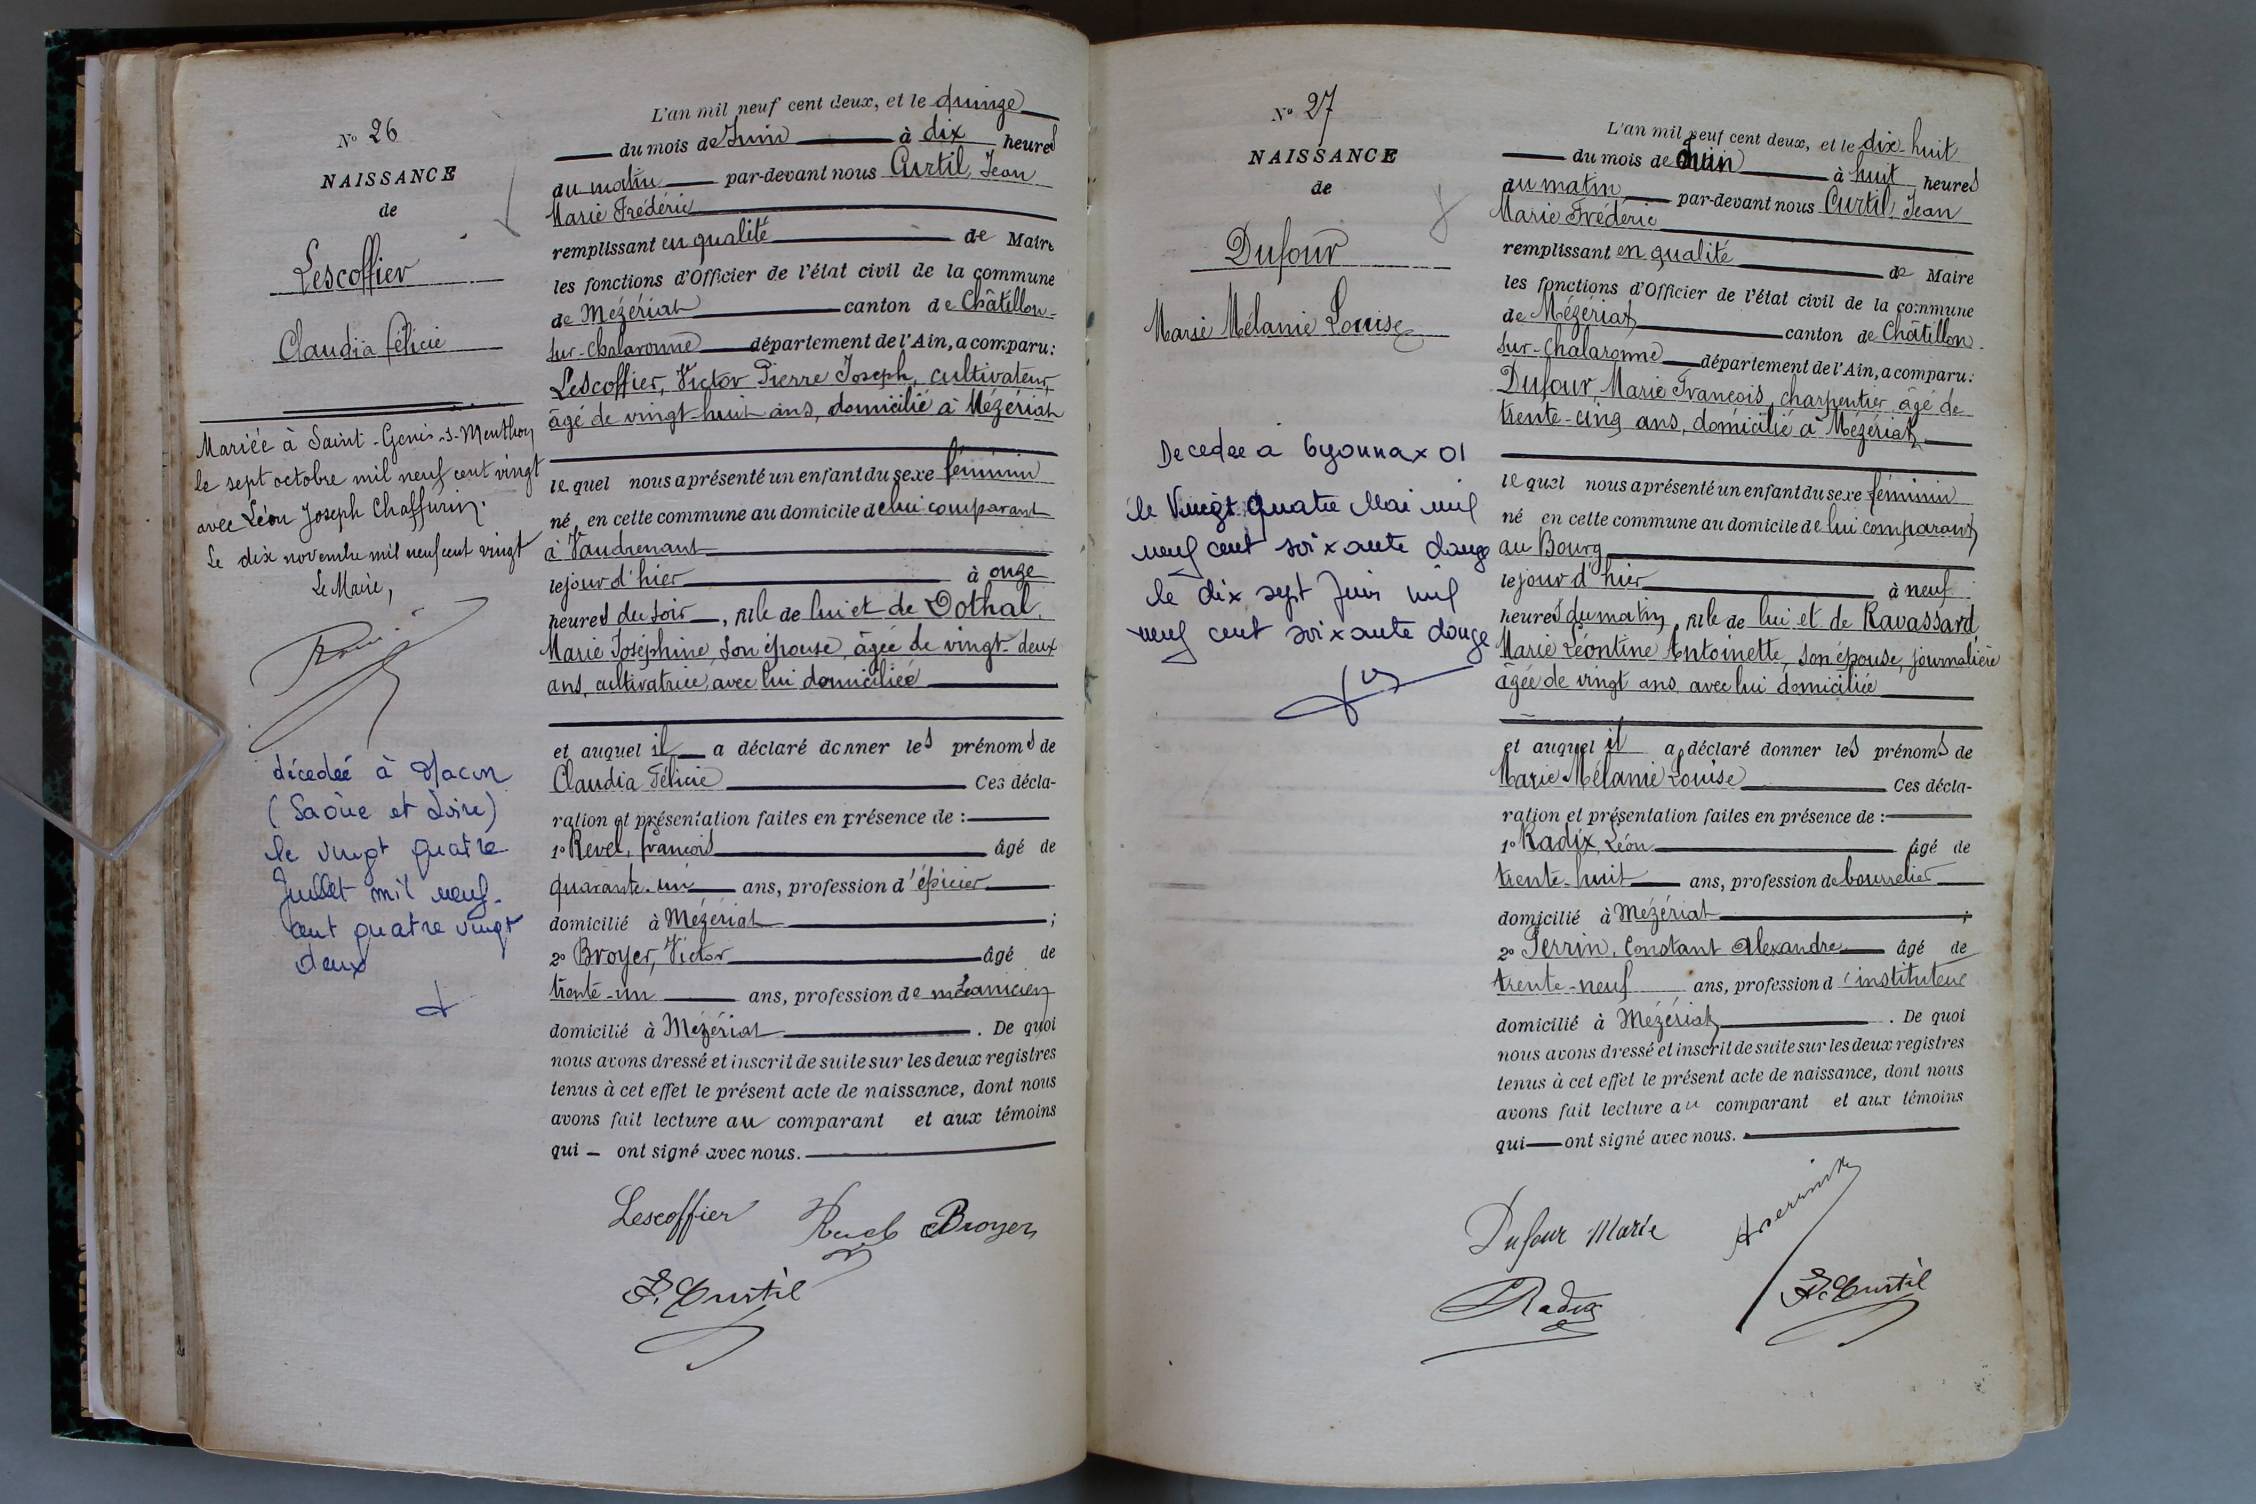 N° 26
NAISSANCE
de
Lescoffier
Claudia Félicie
Mariée à Saint-Genis-s-Menthon
le sept octobre mil neuf cent vingt
avec Léon Joseph Chaffurin.
Le dix novembre mil neuf cent vingt
Le Maire,
décedée à Macon
(Saône et Loire)
le vingt quatre
Juillet mil neuf
cent quatre vingt
deux
L'an mil neuf cent deux, et le quinze
du mois de Juin à dix heures
du matin par-devant nous Curtil, Jean
Marie Frédéric
remplissant en qualité de Maire
les fonctions d'Officier de l'état civil de la commune
de Mézériat canton de Châtillon-
sur-Chalaronne département de l'Ain, a comparu:
Lescoffier, Victor Pierre Joseph, cultivateur,
âgé de vingt-huit ans, domicilié à Mézériat
le quel nous a présenté un enfant du sexe féminin
né en cette commune au domicile de lui comparant
à Vaudrenant
le jour d'hier à onze
heures du soir, fille de lui et de Dothal,
Marie Joséphine, son épouse, âgée de vingt-deux
ans, cultivatrice, avec lui domiciliée
et auquel il a déclaré donner les prénoms de
Claudia Félicie Ces décla-
ration et présentation faites en présence de :
1° Revel, françois âgé de
quarante-un ans, profession d'épicier
domicilié à Mézériat ;
2° Broyer, Victor âgé de
trente-un ans, profession de mécanicien
domicilié à Mézériat . De quoi
nous avons dressé et inscrit de suite sur les deux registres
tenus à cet effet le présent acte de naissance, dont nous
avons fait lecture au comparant et aux témoins
qui ont signé avec nous.
Lescoffier Revel Broyer
F. Curtil
N° 27
NAISSANCE
de
Dufour
Marie Mélanie Louise
Decedee a Oyonnax 01
le Vingt quatre Mai mil
neuf cent soixante douze
le dix sept Juin mil
neuf cent soixante douze
L'an mil neuf cent deux, et le dix-huit
du mois de Juin à huit heures
du matin par-devant nous Curtil, Jean
Marie Frédéric
remplissant en qualité de Maire
les fonctions d'Officier de l'état civil de la commune
de Mézériat canton de Châtillon-
sur-Chalaronne département de l'Ain, a comparu:
Dufour, Marie François, charpentier, âgé de
trente-cinq ans, domicilié à Mézériat
le quel nous a présenté un enfant du sexe féminin
né en cette commune au domicile de lui comparant
au Bourg
le jour d'hier à neuf
heures du matin, fille de lui et de Ravassard,
Marie Léontine Antoinette, son épouse, journalière
âgée de vingt ans, avec lui domiciliée
et auquel il a déclaré donner les prénoms de
Marie Mélanie Louise Ces décla-
ration et présentation faites en présence de :
1° Radix, Léon âgé de
trente-huit ans, profession de bourrelier
domicilié à Mézériat ;
2° Perrin, Constant Alexandre âgé de
trente-neuf ans, profession d'instituteur
domicilié à Mézériat . De quoi
nous avons dressé et inscrit de suite sur les deux registres
tenus à cet effet le présent acte de naissance, dont nous
avons fait lecture au comparant et aux témoins
qui ont signé avec nous.
Dufour Marie Aperrin
Radix F. Curtil